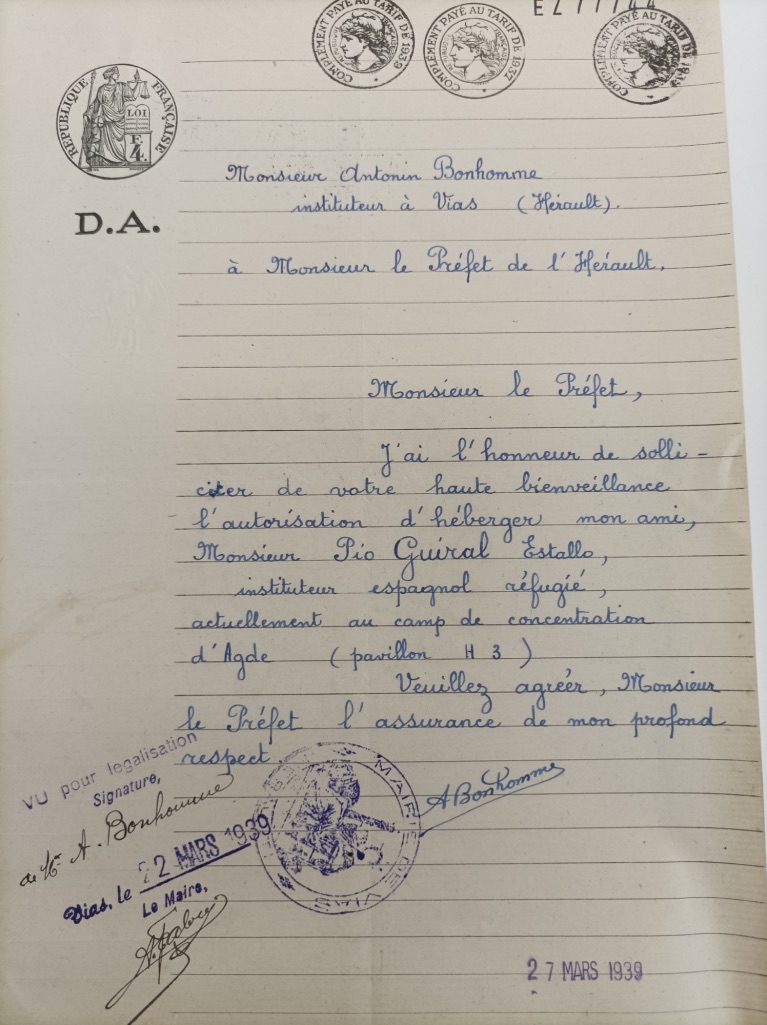 COMPLÉMENT PAYÉ AU TARIF DE 1939
COMPLÉMENT PAYÉ AU TARIF DE 1937
COMPLÉMENT PAYÉ AU TARIF DE 1939
RÉPUBLIQUE FRANÇAISE
LOI
F.
4.
D.A.
Monsieur Antonin Bonhomme
instituteur à Vias (Hérault).
à Monsieur le Préfet de l'Hérault.
Monsieur le Préfet,
J'ai l'honneur de solli-
citer de votre haute bienveillance
l'autorisation d'héberger mon ami,
Monsieur Pio Guiral Estallo,
instituteur espagnol réfugié,
actuellement au camp de concentration
d'Agde (pavillon H 3)
Veuillez agréer, Monsieur
le Préfet l'assurance de mon profond
respect.
ABonhomme
VU pour legalisation
Signature,
de Mr A. Bonhomme
Vias, le 22 MARS 1939
Le Maire,
MAIRIE DE VIAS
27 MARS 1939